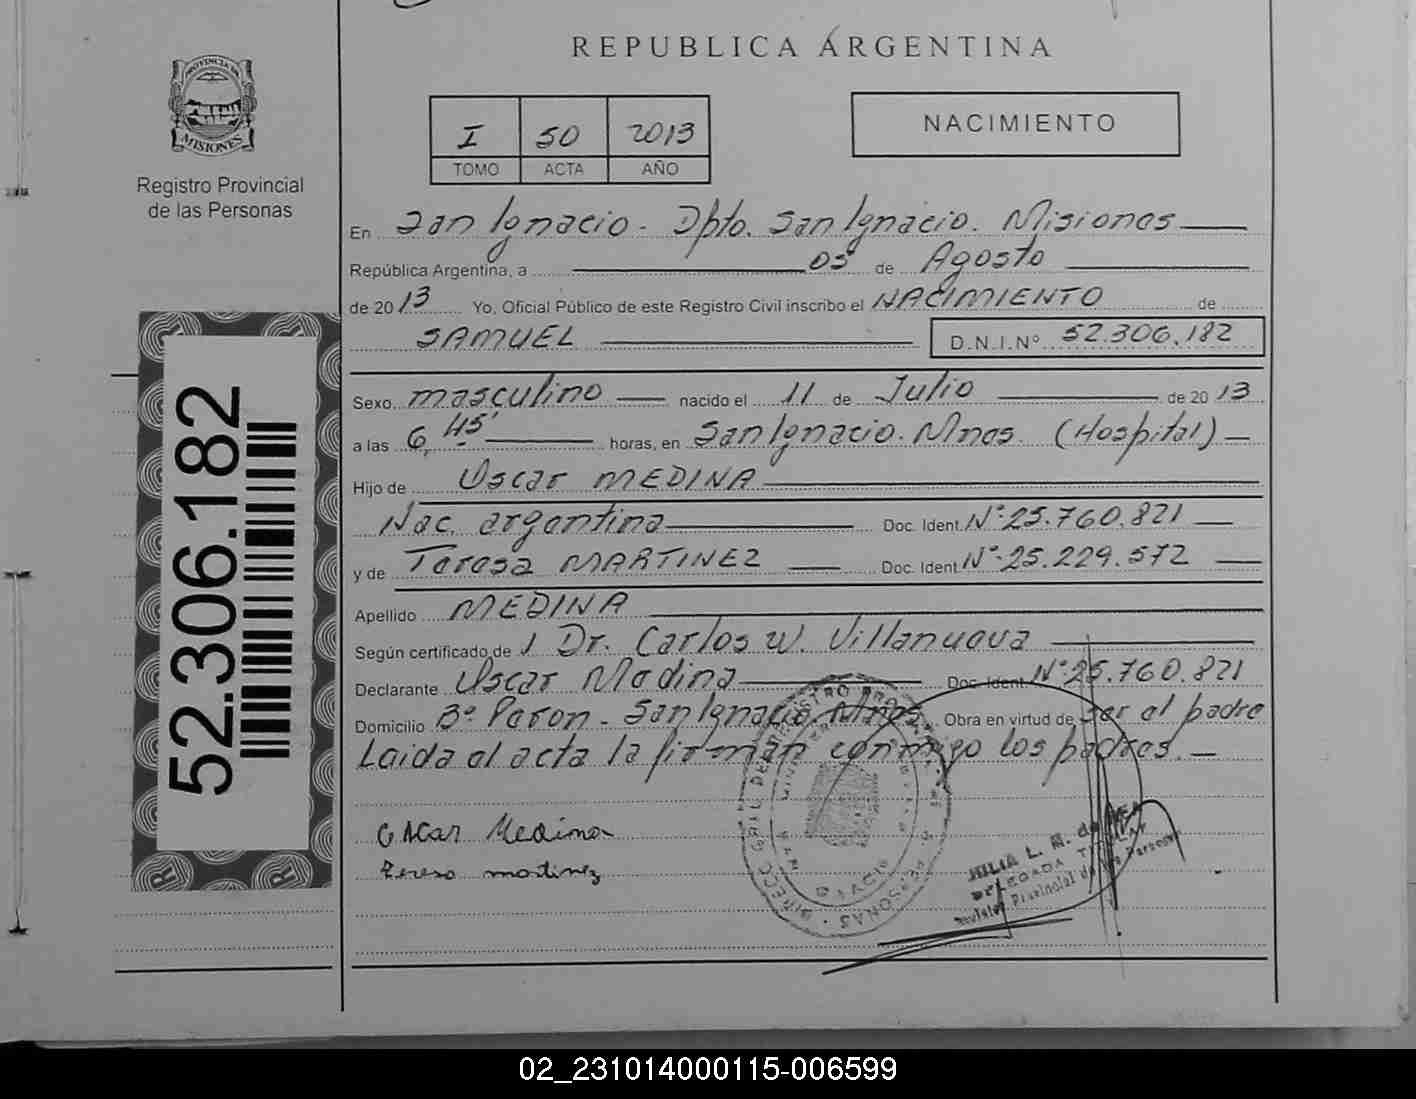 REPUBLICA ARGENTINA
PROVINCIA DE
MISIONES
Registro Provincial
de las Personas
I 50 2013
TOMO ACTA AÑO
NACIMIENTO
En San Ignacio. Dpto. San Ignacio. Misiones
República Argentina, a 05 de Agosto
de 2013 Yo, Oficial Público de este Registro Civil inscribo el NACIMIENTO de
SAMUEL D.N.I.Nº 52.306.182
Sexo masculino nacido el 11 de Julio de 2013
a las 6,45' horas, en San Ignacio. Mnes. (Hospital)
Hijo de Oscar MEDINA
Nac. argentina Doc. Ident. Nº 25.760.821
y de Teresa MARTINEZ Doc. Ident. Nº 25.229.572
Apellido MEDINA
Según certificado de 1 Dr. Carlos W. Villanueva
Declarante Oscar Medina Doc. Ident. Nº 25.760.821
Domicilio Bº Peron - San Ignacio Mnes. Obra en virtud de ser el padre
Leida el acta la firman conmigo los padres.
Oscar Medina
Teresa martinez
JULIA L. M. de
DELEGADA TITULAR
Registro Provincial de las Personas
52.306.182
02_231014000115-006599